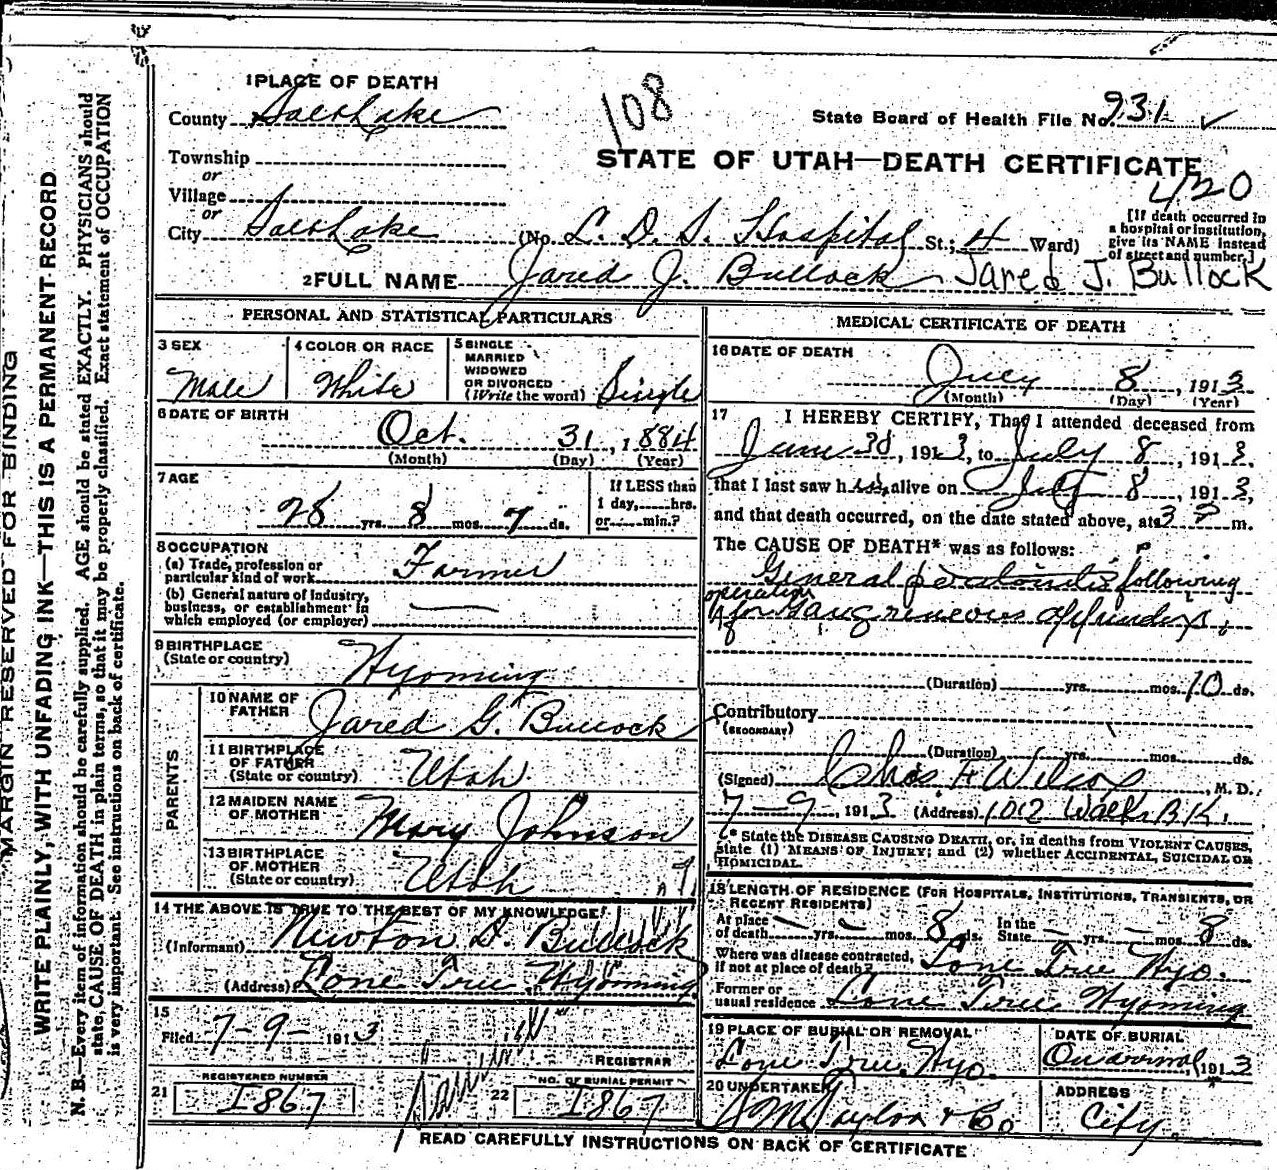 1 PLACE OF DEATH
County Salt Lake
108
State Board of Health File No. 931 ✓
Township
or
Village
or
City Salt Lake
STATE OF UTAH—DEATH CERTIFICATE
420
(No. L. D. S. Hospital St.; 4 Ward)
[If death occurred in
a hospital or institution,
give its NAME instead
of street and number.]
2 FULL NAME Jared J. Bullock Jared J. Bullock
PERSONAL AND STATISTICAL PARTICULARS
3 SEX
Male
4 COLOR OR RACE
White
5 SINGLE
MARRIED
WIDOWED
OR DIVORCED
(Write the word) Single
6 DATE OF BIRTH
Oct. 31, 1884
(Month) (Day) (Year)
7 AGE
28 yrs. 8 mos. 7 ds.
If LESS than
1 day, hrs.
or min.?
8 OCCUPATION
(a) Trade, profession or
particular kind of work Farmer
(b) General nature of industry,
business, or establishment in
which employed (or employer)
9 BIRTHPLACE
(State or country) Wyoming
PARENTS
10 NAME OF
FATHER Jared G. Bullock
11 BIRTHPLACE
OF FATHER
(State or country) Utah
12 MAIDEN NAME
OF MOTHER Mary Johnson
13 BIRTHPLACE
OF MOTHER
(State or country) Utah
14 THE ABOVE IS TRUE TO THE BEST OF MY KNOWLEDGE
(Informant) Newton D. Bullock
(Address) Lone Tree Wyoming
15
Filed 7-9- 1913
REGISTRAR
21 REGISTERED NUMBER
1867
22 NO. OF BURIAL PERMIT
1867
MEDICAL CERTIFICATE OF DEATH
16 DATE OF DEATH
July 8, 1913
(Month) (Day) (Year)
17 I HEREBY CERTIFY, That I attended deceased from
June 30, 1913, to July 8, 1913,
that I last saw him alive on July 8, 1913,
and that death occurred, on the date stated above, at 3 P m.
The CAUSE OF DEATH* was as follows:
General peritonitis following
operation
for gangrenous appendix
(Duration) yrs. mos. 10 ds.
Contributory
(SECONDARY)
(Duration) yrs. mos. ds.
(Signed) Chas F Wilcox, M. D.
7-9, 1913 (Address) 1012 Walk. BK.
* State the DISEASE CAUSING DEATH, or, in deaths from VIOLENT CAUSES,
state (1) MEANS OF INJURY; and (2) whether ACCIDENTAL, SUICIDAL OR
HOMICIDAL.
18 LENGTH OF RESIDENCE (FOR HOSPITALS, INSTITUTIONS, TRANSIENTS, OR
RECENT RESIDENTS)
At place
of death yrs. mos. 8 ds.
In the
State yrs. mos. 8 ds.
Where was disease contracted,
if not at place of death? Lone Tree Wyo.
Former or
usual residence Lone Tree Wyoming
19 PLACE OF BURIAL OR REMOVAL
Lone Tree, Wyo.
DATE OF BURIAL
On arrival, 1913
20 UNDERTAKER
Taylor & Co
ADDRESS
City.
READ CAREFULLY INSTRUCTIONS ON BACK OF CERTIFICATE
MARGIN RESERVED FOR BINDING
WRITE PLAINLY, WITH UNFADING INK—THIS IS A PERMANENT RECORD
N. B.—Every item of information should be carefully supplied. AGE should be stated EXACTLY. PHYSICIANS should
state CAUSE OF DEATH in plain terms, so that it may be properly classified. Exact statement of OCCUPATION
is very important. See instructions on back of certificate.